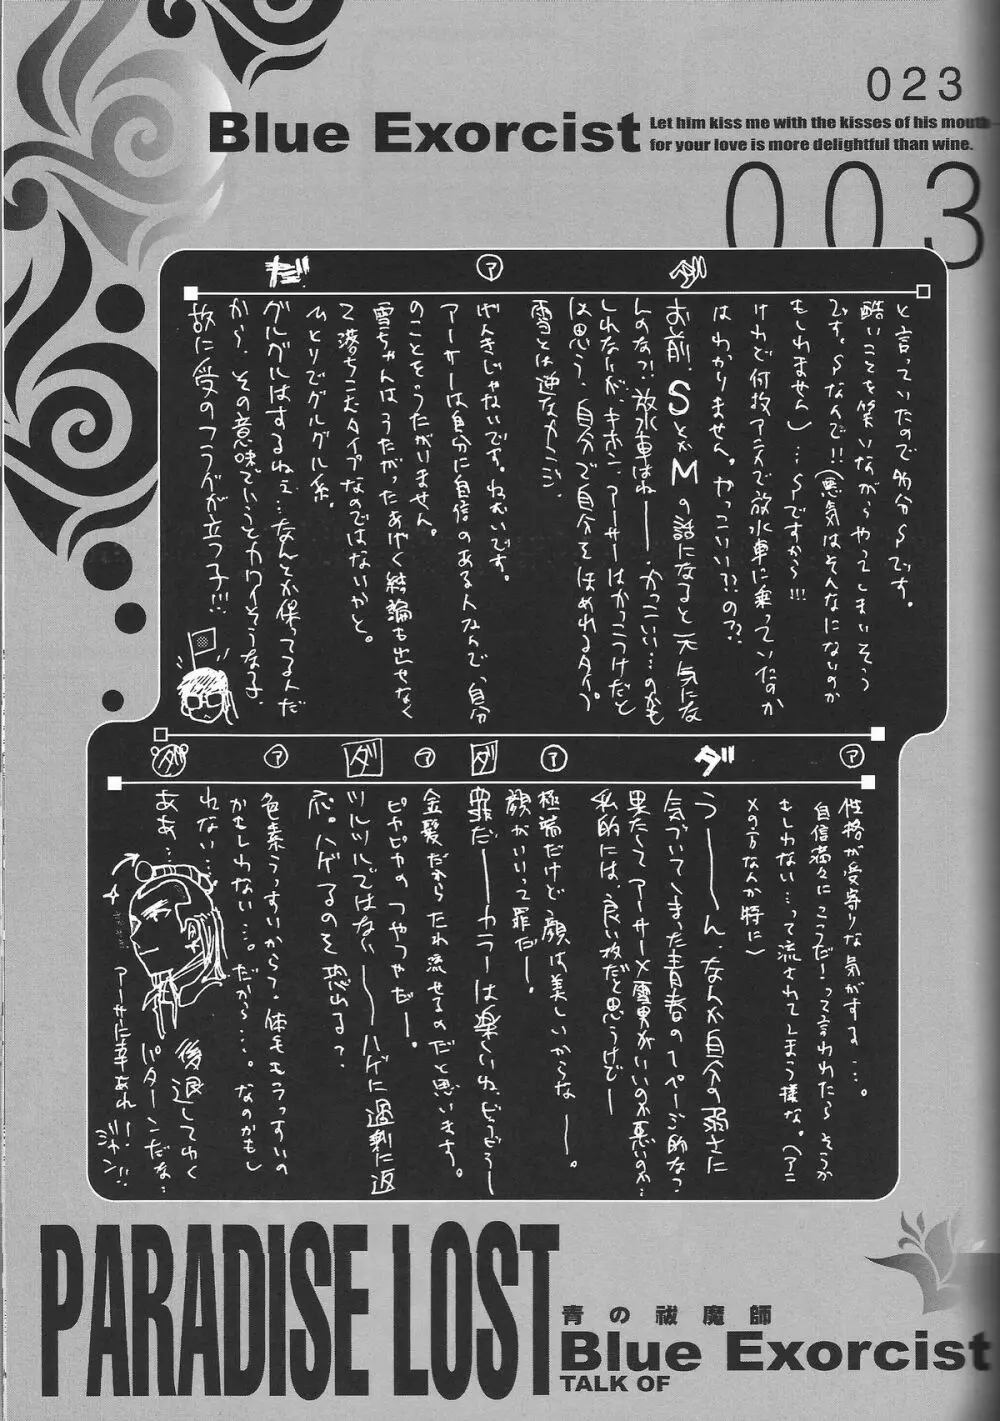 023
Blue Exorcist
Let him kiss me with the kisses of his mouth
for your love is more delightful than wine.
003
と言っていたので多分Sです。
酷いことを笑いながらやってしまいそう
です。Sなんで!!(悪気はそんなにないのか
もしれません)…Sですから!!!
けれど何故アニメで放水車に乗っていたのか
はわかりません。かっこいい??の??
ダ
お前、SとかMの話になると元気にな
んのな?!放水車はねー、かっこいい…のかも
しれないが、キホン、アーサーはかっこうけだと
は思う、自分で自分をほめれるタイプ
雪とは逆なカンジ。
ア
げんきじゃないです。ねむいです。
アーサーは自分に自信のある人なんで、自分
のことをうたがいません。
雪ちゃんは、うたがったあげく結論も出せなく
て落ちこむタイプなのではないかと。
ひとりでグルグル系。
だ
グルグルはするねぇ…なんとか保ってるんだ
から、その意味でいうとカワイそうな子、
故に受のフラグが立つ子!!!
ア
性格が受寄りな気がする…。
自信満々に「こうだ!」って言われたら「そうか
もしれない…」って流されてしまう様な。(アニ
メの方なんか特に)
ダ
うーーん、なんか自分の弱さに
気づいてしまった青春の1ページ的な?
果たしてアーサー×雪男がいいのか悪いのか…
私的には、良い攻だと思うけどー
ア
極端だけど顔は美しいからなーー。
顔がいいって罪だー。
ダ
罪だーーカラーは楽しいね、どうどうー
ア
金髪だからたれ流せるのだと思います。
ピカピカのつやつやだー。
ダ
ツルツルではないーーハゲに過剰に返
応。ハゲるのを恐れる?
ア
色素うっすいからって、体毛もうっすいの
かもしれない…。だから…。なのかもし
れない…
ダ
ああ…
後退してゆく
パターンだな…
アーサーに幸あれ!
ジャン!!
PARADISE LOST
青の祓魔師
Blue Exorcist
TALK OF